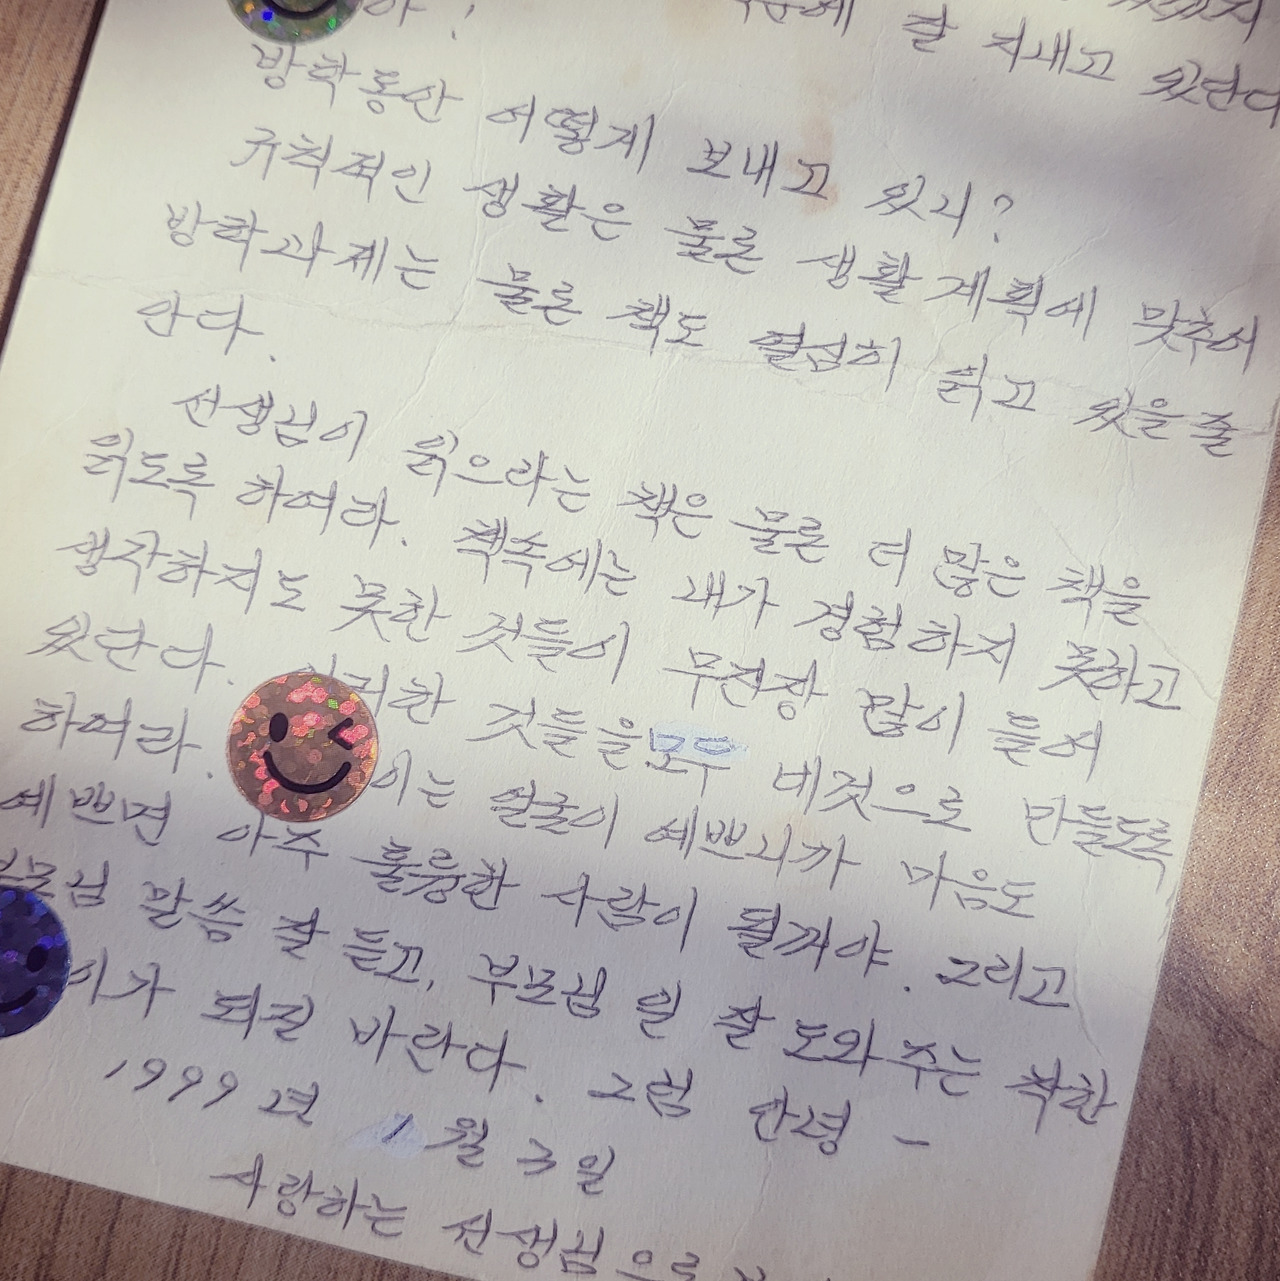 야! 잘 지내고 있단다
방학동안 어떻게 보내고 있니?
규칙적인 생활은 물론 생활계획에 맞추어
방학과제는 물론 책도 열심히 읽고 있을줄
안다.
선생님이 읽으라는 책은 물론 더 많은 책을
읽도록 하여라. 책속에는 내가 경험하지 못하고
생각하지도 못한 것들이 무진장 많이 들어
있단다. 것들을 모두 네것으로 만들도록
하여라. 이는 얼굴이 예쁘니까 마음도
예쁘면 아주 훌륭한 사람이 될꺼야. 그리고
말씀 잘 듣고, 부모님 일 잘 도와주는 착한
이가 되길 바란다. 그럼 안녕 -
1999년 1월 3일
사랑하는 선생님으로